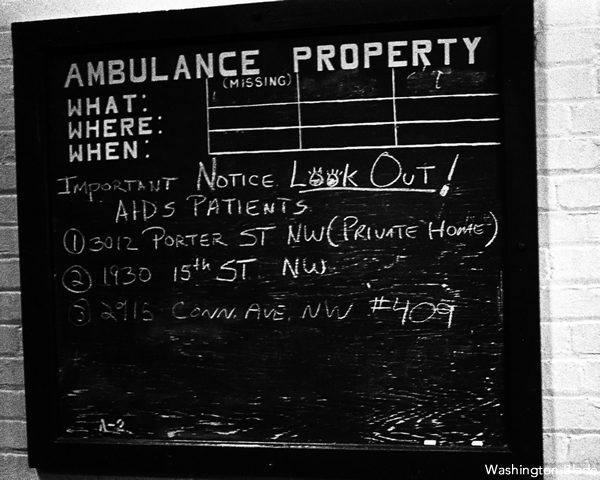 AMBULANCE PROPERTY
(MISSING)
WHAT:
WHERE:
WHEN:
IMPORTANT NOTICE LOOK OUT!
AIDS PATIENTS
① 3012 PORTER ST NW (PRIVATE HOME)
② 1930 15th ST. NW
③ 2915 CONN. AVE. NW #409
A-2
Washington Blade